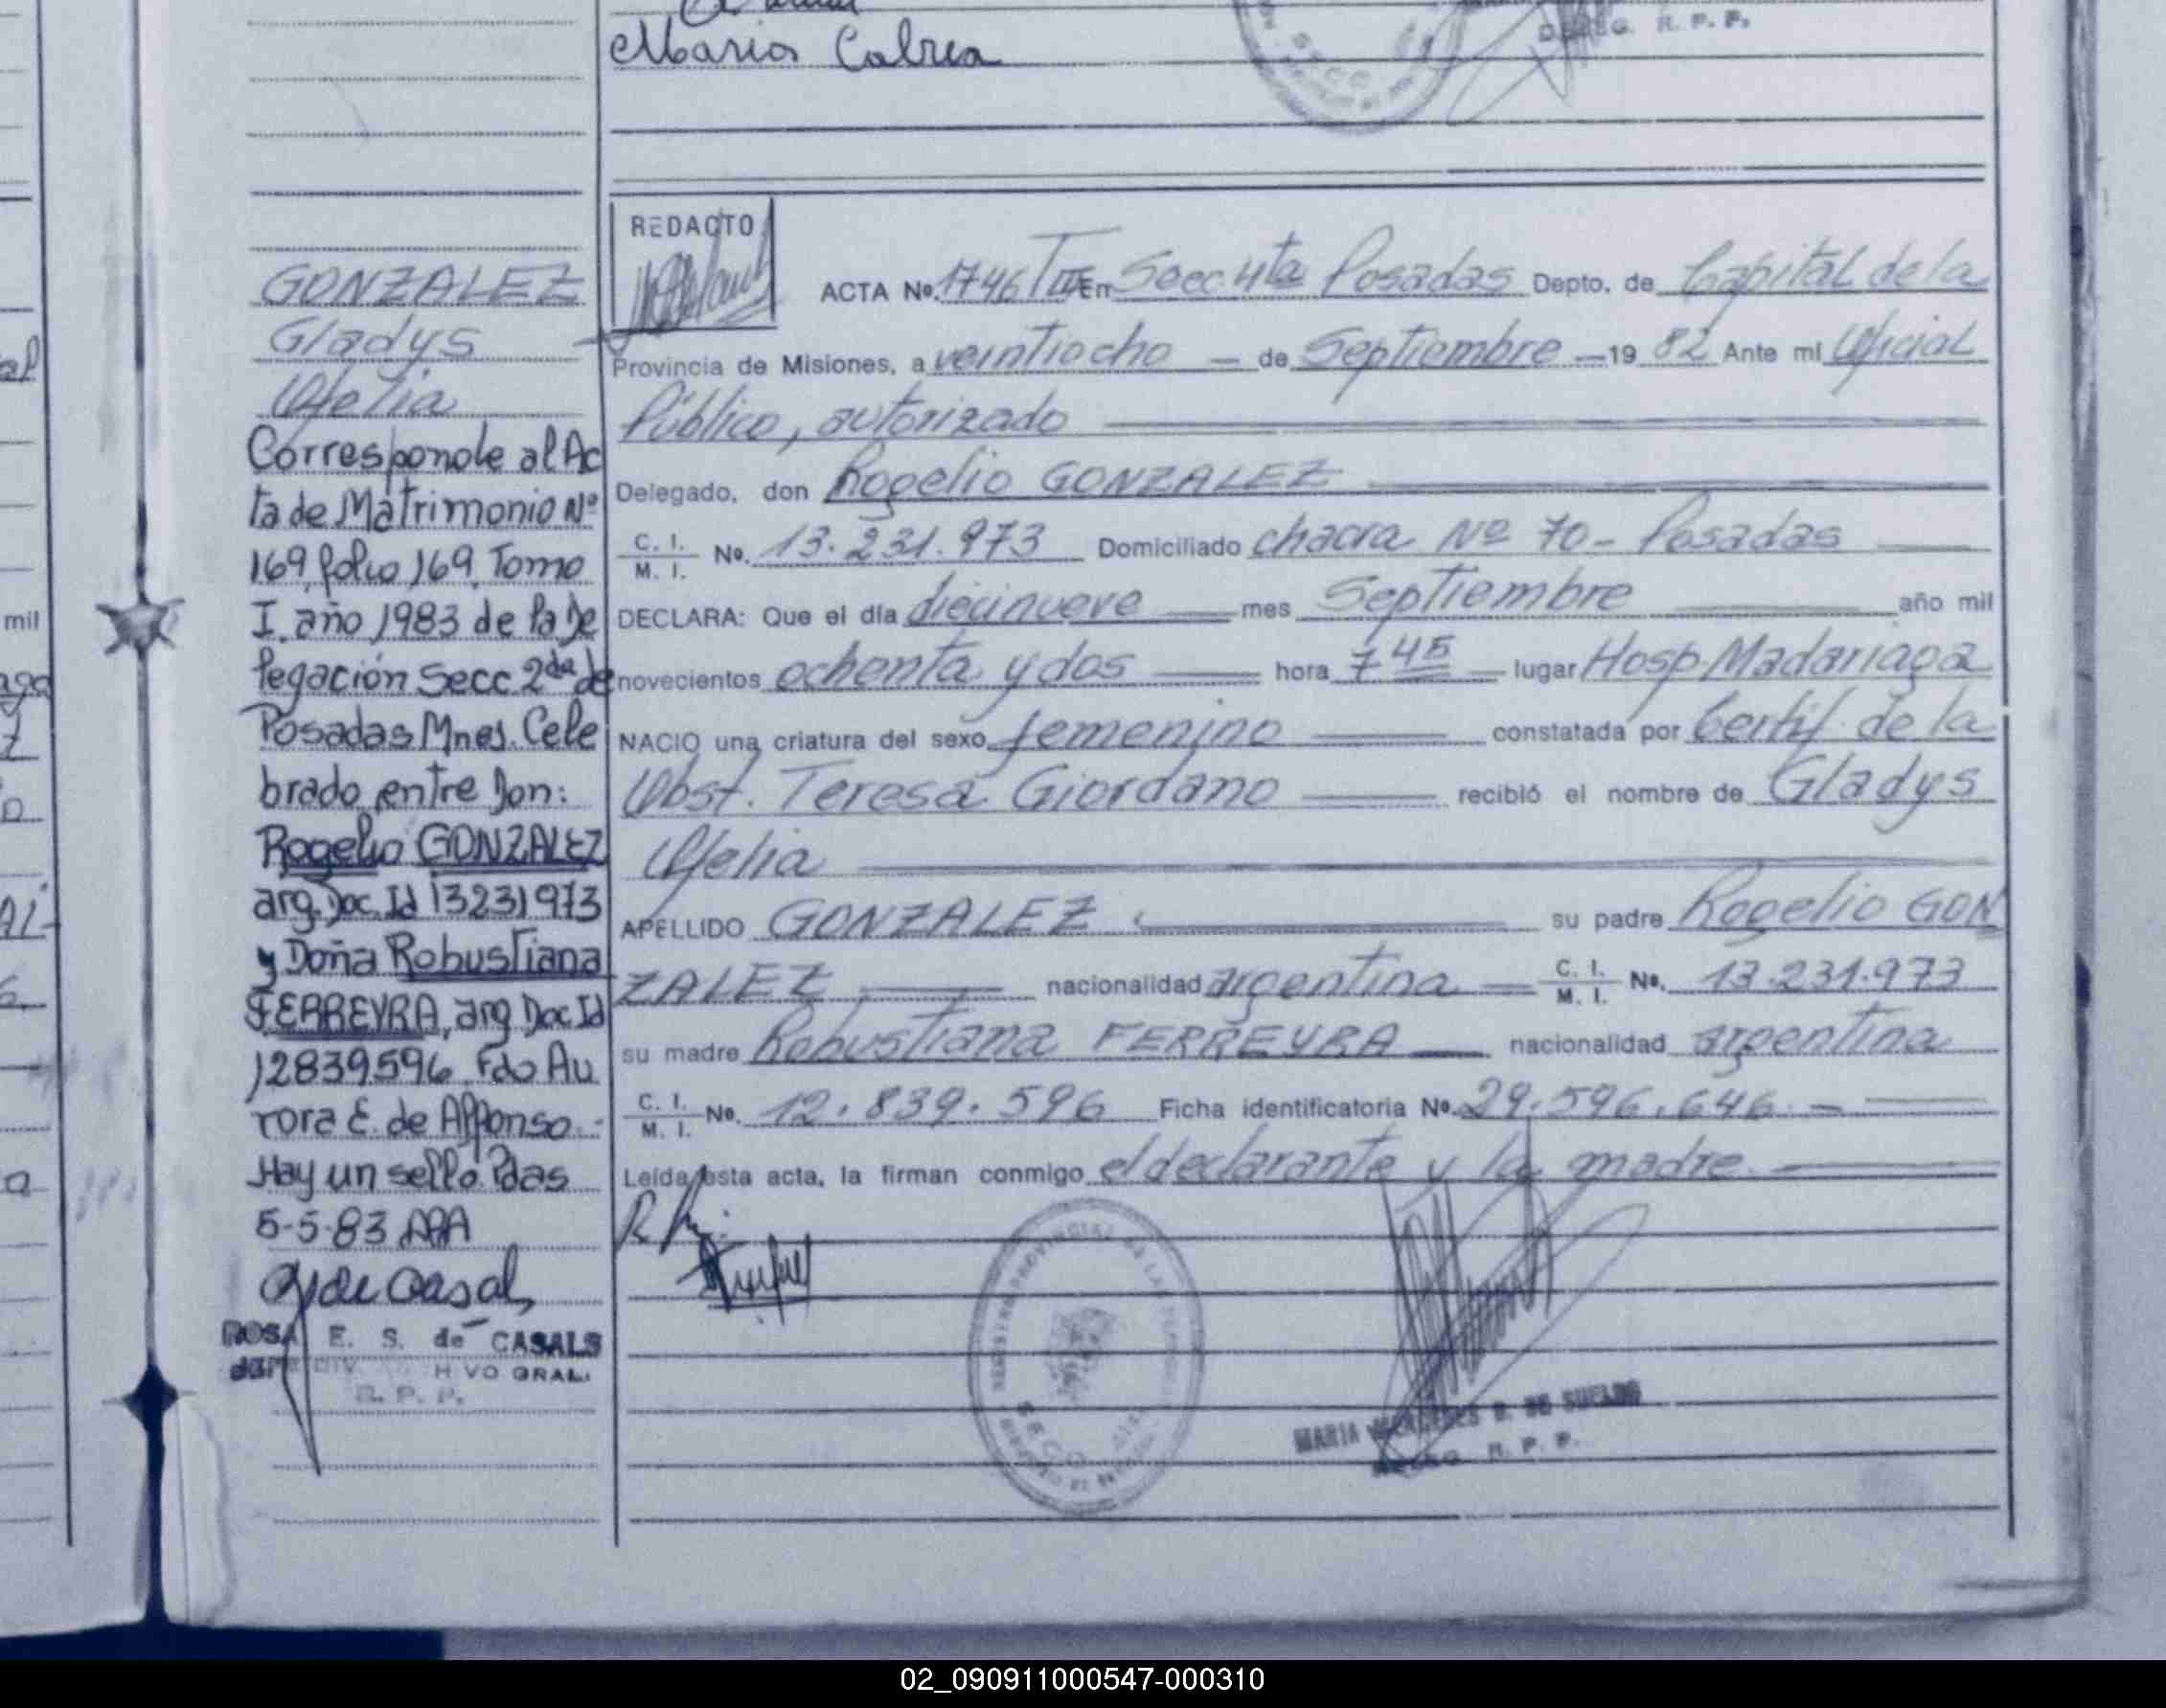 Maria Cabrea
DELEG. R. P. P.
REDACTO
GONZALEZ
Gladys
Ofelia
Corresponde al Ac
ta de Matrimonio Nº
169 folio 169 Tomo
I. año 1983 de la De
legación Secc 2da de
Posadas Mnes. Cele
brado entre Don:
Rogelio GONZALEZ
arg. Doc. Id 13231973
y Doña Robustiana
FERREYRA, arg Doc Id
12839596 Fdo Au
rora E. de Alfonso.-
Hay un sello. Pdas
5-5-83 APA
R. de Casals
ROSA E. S. de CASALS
R. P. P.
ACTA Nº. 1746 T III En Secc 4ta Posadas Depto. de Capital de la
Provincia de Misiones, a veintiocho — de Septiembre — 19 82 Ante mí Oficial
Público, autorizado
Delegado, don Rogelio GONZALEZ
C. I. M. I. Nº. 13.231.973 Domiciliado chacra Nº 70 - Posadas
DECLARA: Que el día diecinueve — mes Septiembre — año mil
novecientos ochenta y dos — hora 7 45 — lugar Hosp. Madariaga
NACIO una criatura del sexo femenino — constatada por Certif. de la
Obst. Teresa Giordano — recibió el nombre de Gladys
Ofelia
APELLIDO GONZALEZ — su padre Rogelio GON
ZALEZ — nacionalidad argentina — C. I. M. I. Nº. 13.231.973
su madre Robustiana FERREYRA — nacionalidad argentina
C. I. M. I. Nº. 12.839.596 Ficha identificatoria Nº. 29.596.646 —
Leída esta acta, la firman conmigo el declarante y la madre.
MARIA MERCEDES B. DE SUELDO
DELEG. R. P. P.
mil
02_090911000547-000310